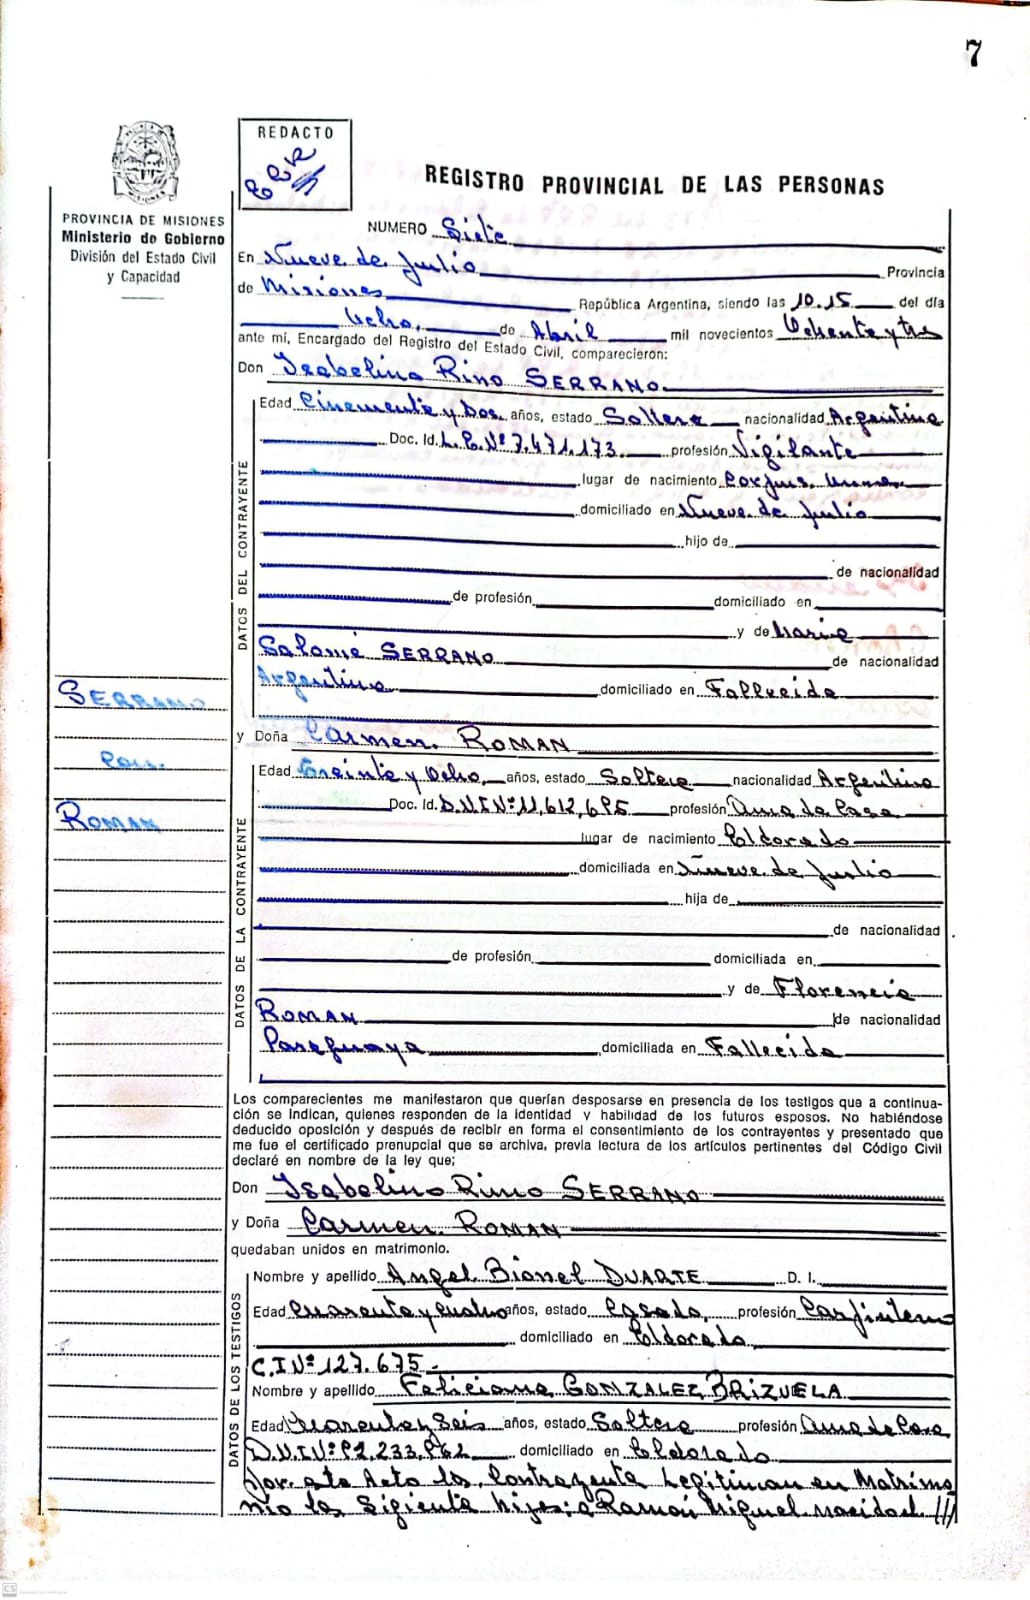 7
REDACTO
REGISTRO PROVINCIAL DE LAS PERSONAS
PROVINCIA DE MISIONES
Ministerio de Gobierno
División del Estado Civil
y Capacidad
NUMERO Siete
En Nueve de Julio Provincia
de Misiones República Argentina, siendo las 10.15 del día
Ocho, de Abril mil novecientos Ochenta y tres
ante mi, Encargado del Registro del Estado Civil, comparecieron:
Don Isabelino Rino SERRANO
DATOS DEL CONTRAYENTE
Edad Cincuenta y Dos años, estado Soltero nacionalidad Argentina
Doc. Id. L.E.Nº 7.471.173. profesión Vigilante
lugar de nacimiento Corpus,
domiciliado en Nueve de Julio
hijo de
de nacionalidad
de profesión domiciliado en
y de Maria
Salomé SERRANO de nacionalidad
Argentina domiciliado en Fallecida
SERRANO
con
ROMAN
y Doña Carmen. ROMAN
DATOS DE LA CONTRAYENTE
Edad Treinta y Ocho, años, estado Soltera nacionalidad Argentina
Doc. Id. D.N.I Nº 11,612,695 profesión Ama de Casa
lugar de nacimiento Eldorado
domiciliada en Nueve de Julio
hija de
de nacionalidad
de profesión domiciliada en
y de Florencia
ROMAN de nacionalidad
Paraguaya domiciliada en Fallecida
Los comparecientes me manifestaron que querían desposarse en presencia de los testigos que a continua-
ción se indican, quienes responden de la identidad y habilidad de los futuros esposos. No habiéndose
deducido oposición y después de recibir en forma el consentimiento de los contrayentes y presentado que
me fue el certificado prenupcial que se archiva, previa lectura de los artículos pertinentes del Código Civil
declaré en nombre de la ley que;
Don Isabelino Rino SERRANO
y Doña Carmen. ROMAN
quedaban unidos en matrimonio.
DATOS DE LOS TESTIGOS
Nombre y apellido Angel Bionel DUARTE D. I.
Edad Cuarenta y cuatro años, estado Casado, profesión Carpintero
domiciliado en Eldorado
C.I Nº 127.675-
Nombre y apellido Feliciana GONZALEZ BRIZUELA
Edad Cuarenta y Seis años, estado Soltera profesión Ama de Casa
D.N.I Nº 92.233.962 domiciliado en Eldorado
Por este Acto los Contrayente Legitiman en Matrimo
nio los Sigiente hijos; a Ramón Miguel nacido el ///
CS